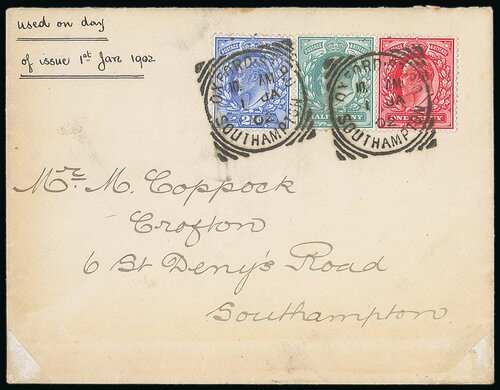 used on day
of issue 1st Jan 1902
POSTAGE REVENUE
2½D
POSTAGE REVENUE
HALFPENNY
POSTAGE REVENUE
ONE PENNY
OXFORD ST. B.O
10. AM
1 JA
02
SOUTHAMPTON
OXFORD ST. B.O
10. AM
1 JA
02
SOUTHAMPTON
Mr M. Coppock
Crofton
6 St Deny's Road
Southampton